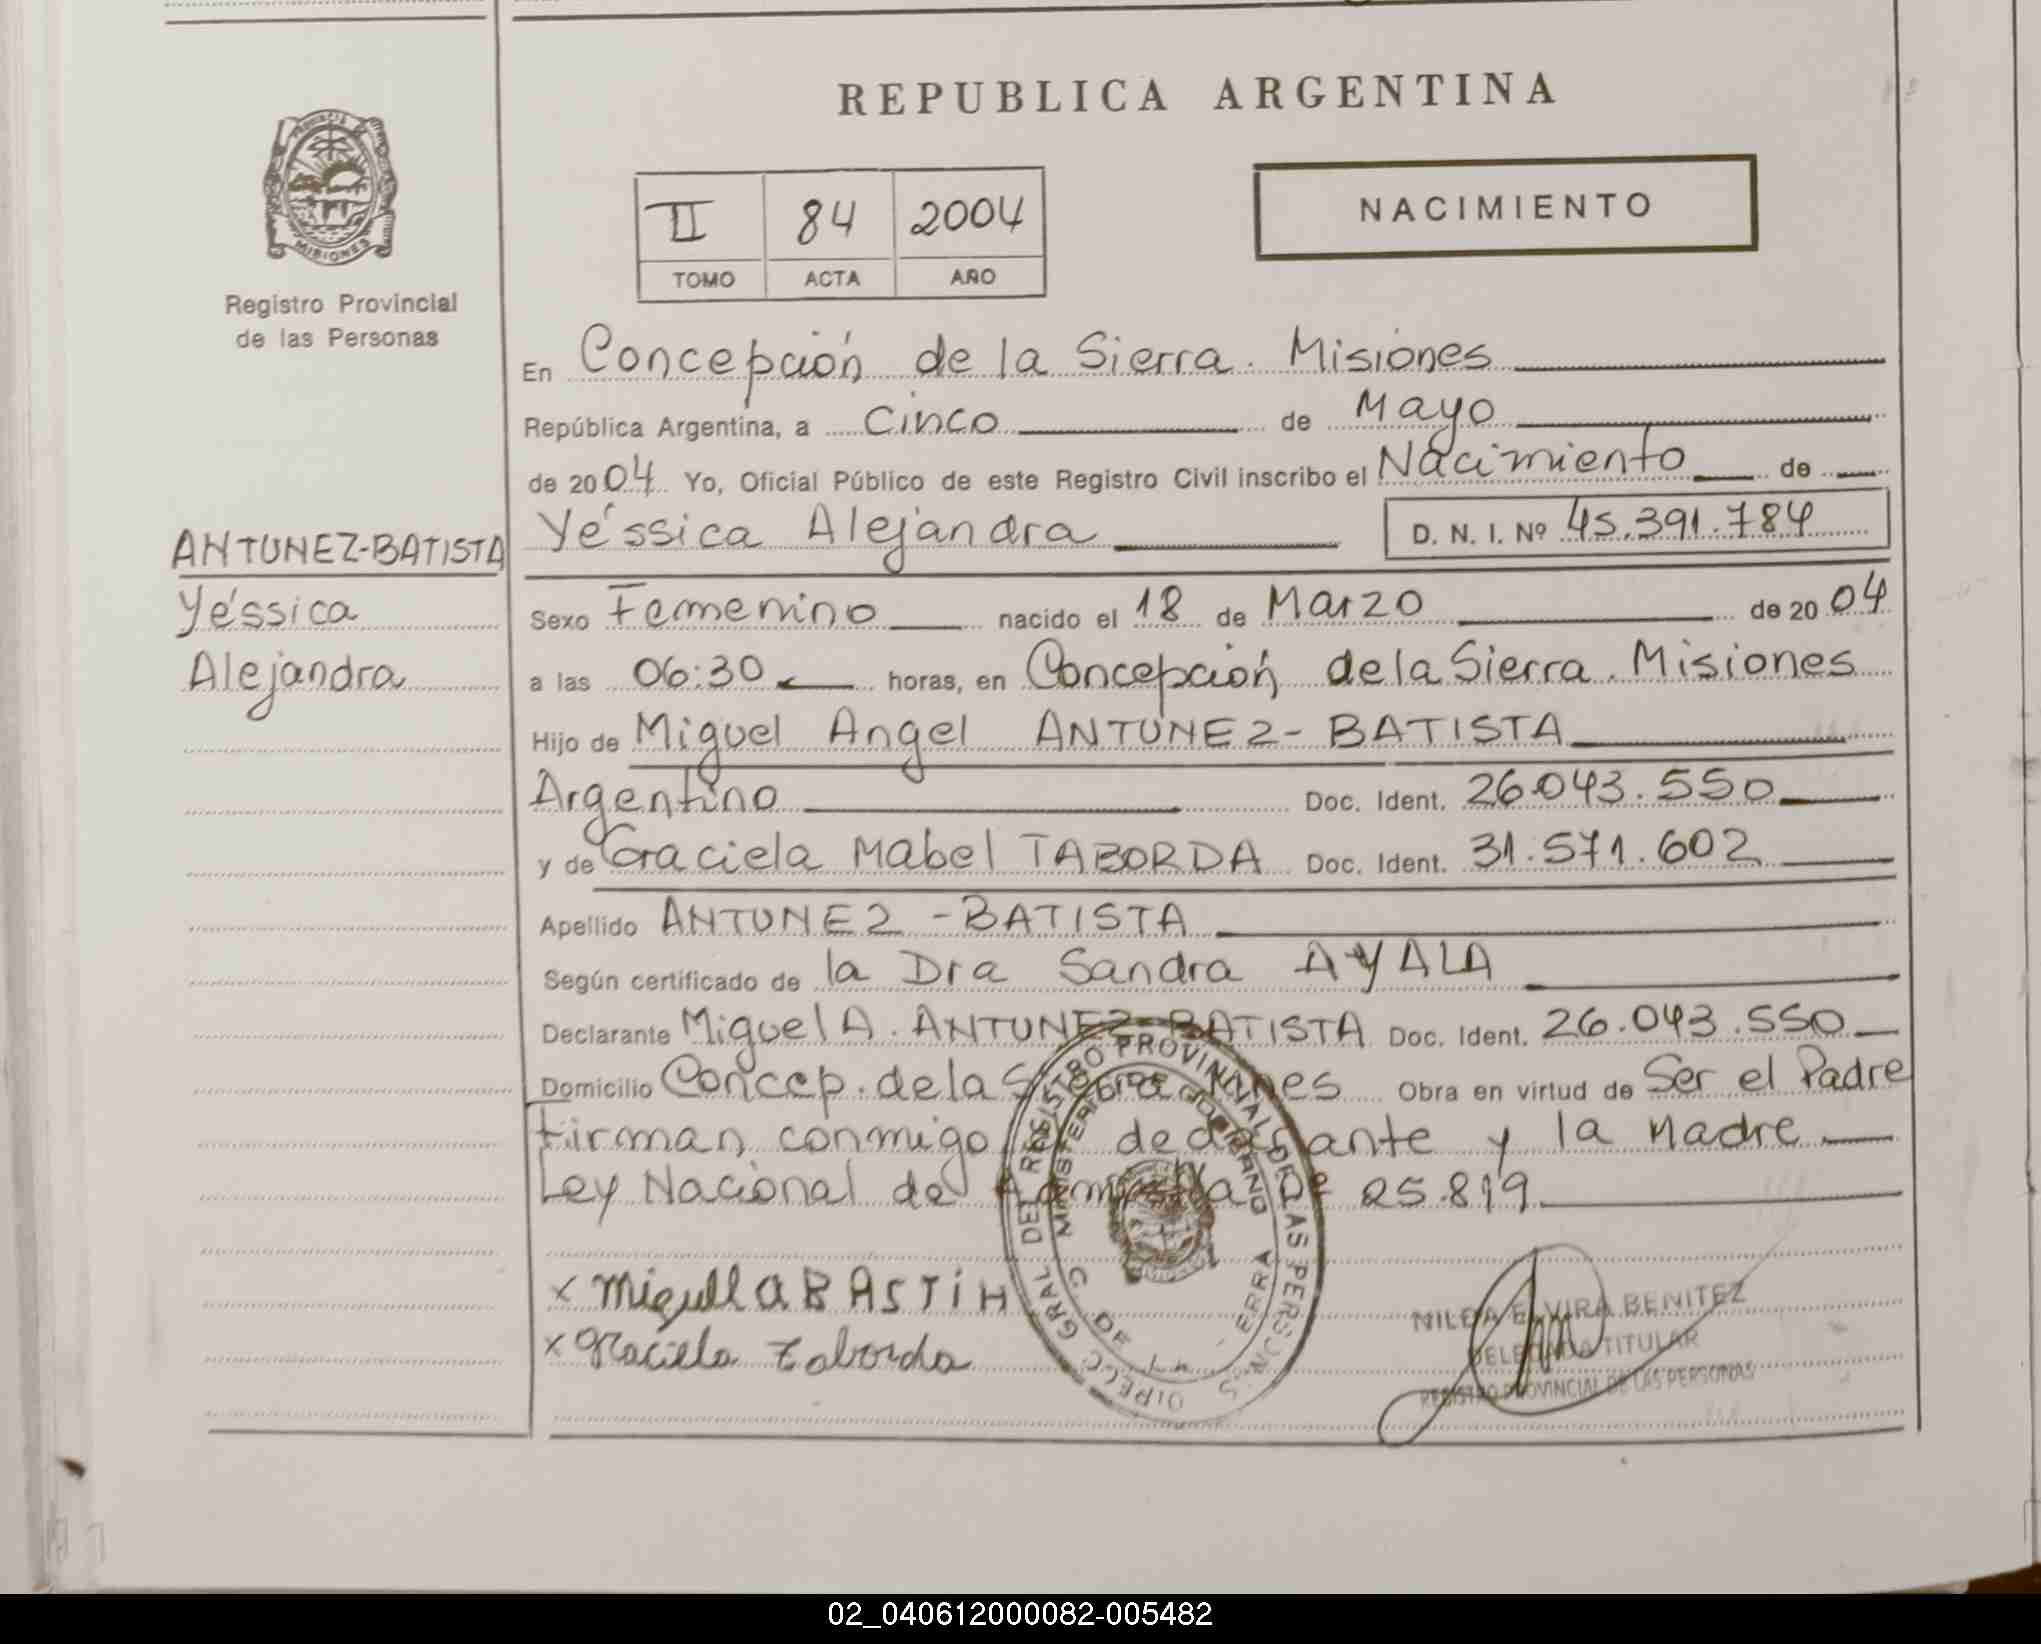 REPUBLICA ARGENTINA
PROVINCIA
MISIONES
Registro Provincial
de las Personas
II 84 2004
TOMO ACTA AÑO
NACIMIENTO
En Concepción de la Sierra. Misiones
República Argentina, a Cinco de Mayo
de 2004 Yo, Oficial Público de este Registro Civil inscribo el Nacimiento de
ANTUNEZ-BATISTA
Yéssica
Alejandra
Yéssica Alejandra D. N. I. Nº 45.391.784
Sexo Femenino nacido el 18 de Marzo de 2004
a las 06:30 horas, en Concepción de la Sierra. Misiones
Hijo de Miguel Angel ANTUNEZ-BATISTA
Argentino Doc. Ident. 26.043.550
y de Graciela Mabel TABORDA Doc. Ident. 31.571.602
Apellido ANTUNEZ-BATISTA
Según certificado de la Dra Sandra AYALA
Declarante Miguel A. ANTUNEZ-BATISTA Doc. Ident. 26.043.550
Domicilio Concep. de la Sierra Obra en virtud de Ser el Padre
Firman conmigo declarante y la Madre
Ley Nacional de 25.819
DIRECC. GRAL DEL REGISTRO PROVINCIAL DE LAS PERSONAS
MINISTERIO DE GOBIERNO
x Miguel A BASTIH
x Graciela Taborda
NILDA ELVIRA BENITEZ
DELEGADA TITULAR
REGISTRO PROVINCIAL DE LAS PERSONAS
02_040612000082-005482